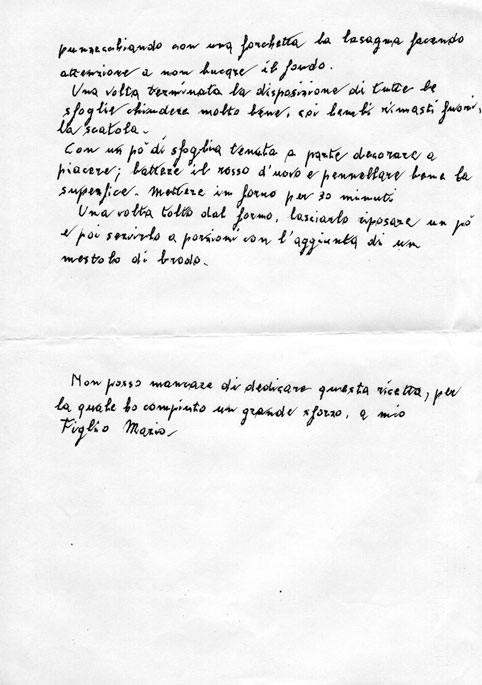 punzecchiando con una forchetta la lasagna facendo
attenzione a non bucare il fondo.
Una volta terminata la disposizione di tutte le
sfoglie chiudere molto bene, coi lembi rimasti fuori,
la scatola.
Con un pò di sfoglia tenuta a parte decorare a
piacere; battere il rosso d'uovo e pennellare bene la
superfice. Mettere in forno per 30 minuti
Una volta tolto dal forno, lasciarlo riposare un pò
e poi servirlo a porzioni con l'aggiunta di un
mestolo di brodo.
Non posso mancare di dedicare questa ricetta, per
la quale ho compiuto un grande sforzo, a mio
Figlio Mario